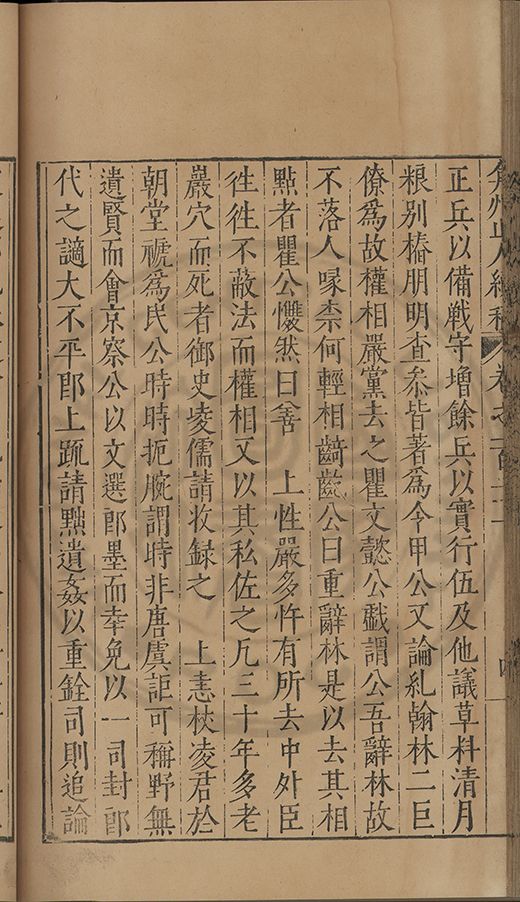 弇州山人續稿 卷之一百三十一 四
正兵以備戰守增餘兵以實行伍及他議草料清月
粮别樁朋明查叅皆著爲令甲公又論糺翰林二巨
僚爲故權相嚴黨去之瞿文懿公戲謂公吾辭林故
不落人喙柰何輕相齮齕公曰重辭林是以去其相
㸃者瞿公戄然曰善 上性嚴多忤有所去中外臣
徃徃不蔽法而權相又以其私佐之凢三十年多老
巖穴而死者御史凌儒請收録之 上恚杖凌君於
朝堂禠爲民公時時扼腕謂時非唐虞詎可稱野無
遺賢而會京察公以文選郎墨而幸免以一司封郎
代之謫大不平卽上疏請㸃遺姦以重銓司則追論